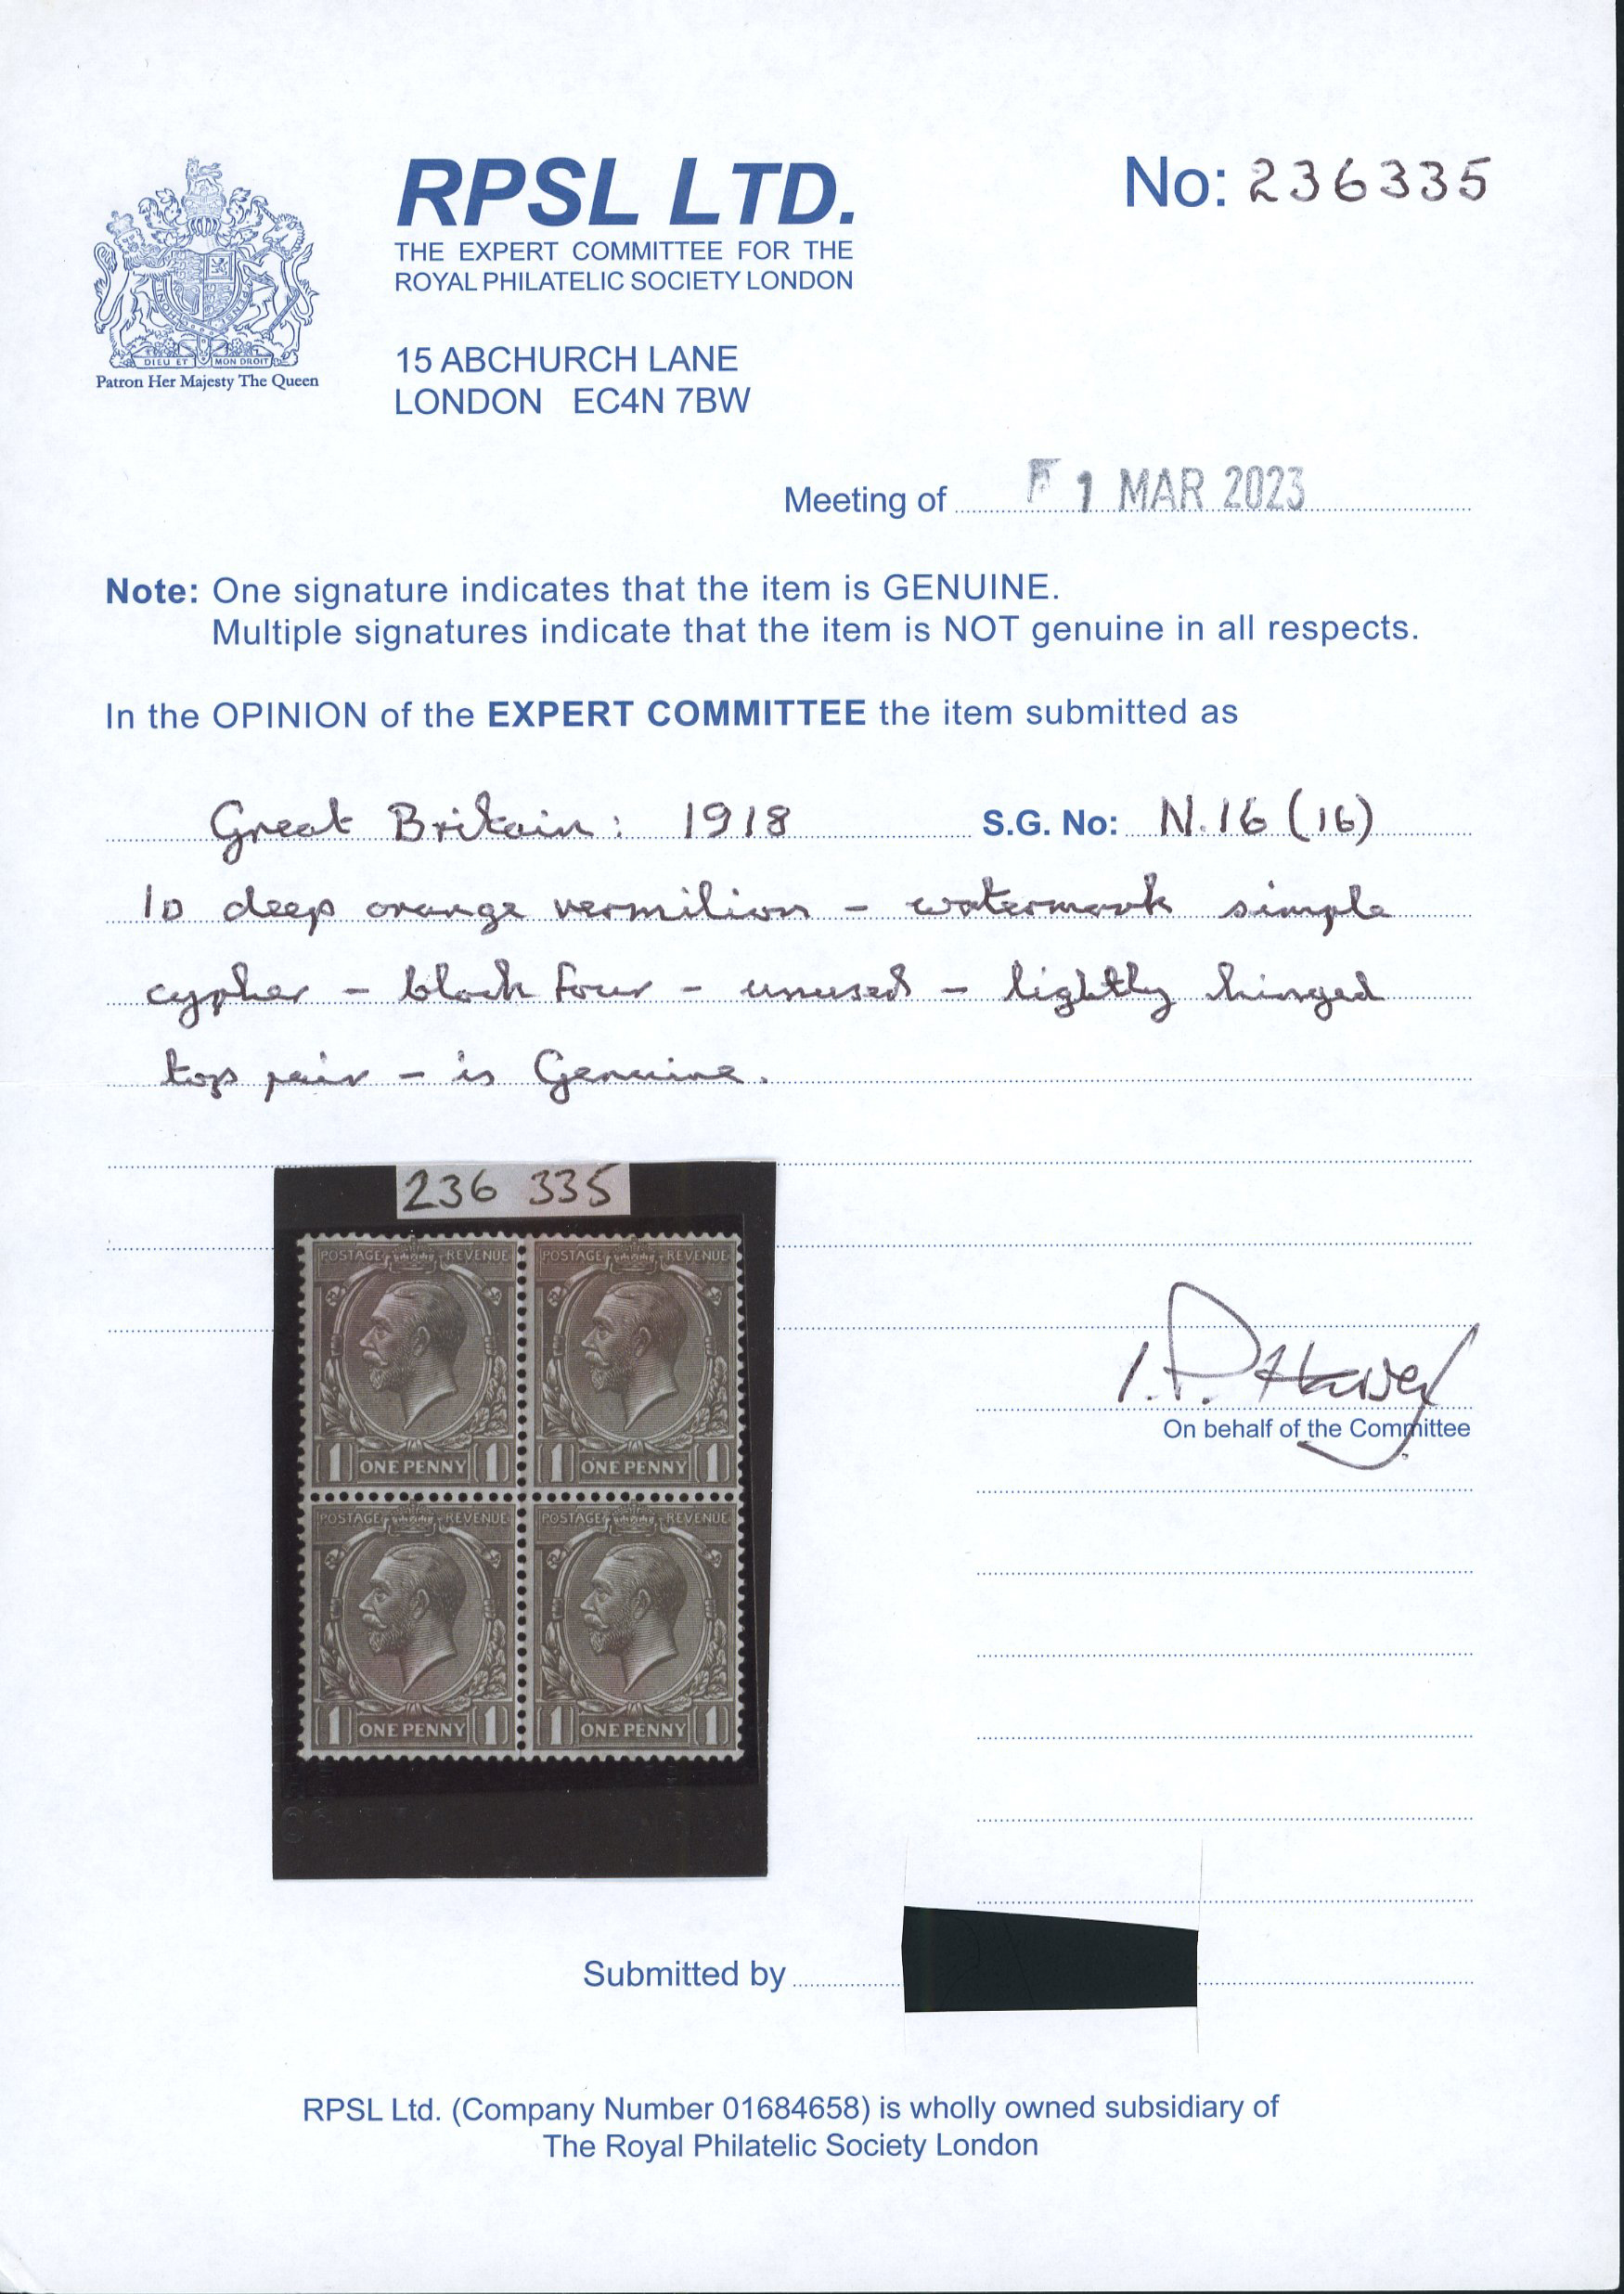 RPSL LTD.
THE EXPERT COMMITTEE FOR THE
ROYAL PHILATELIC SOCIETY LONDON
No: 236335
DIEU ET MON DROIT
Patron Her Majesty The Queen
15 ABCHURCH LANE
LONDON EC4N 7BW
Meeting of 1 MAR 2023
Note: One signature indicates that the item is GENUINE.
Multiple signatures indicate that the item is NOT genuine in all respects.
In the OPINION of the EXPERT COMMITTEE the item submitted as
Great Britain: 1918 S.G. No: N.16 (16)
1D deep orange vermilion - watermark simple
cypher - block four - unused - lightly hinged
top pair - is Genuine.
236 335
POSTAGE REVENUE POSTAGE REVENUE
1 ONE PENNY 1 1 ONE PENNY 1
POSTAGE REVENUE POSTAGE REVENUE
1 ONE PENNY 1 1 ONE PENNY 1
I. P. Harvey
On behalf of the Committee
Submitted by
RPSL Ltd. (Company Number 01684658) is wholly owned subsidiary of
The Royal Philatelic Society London